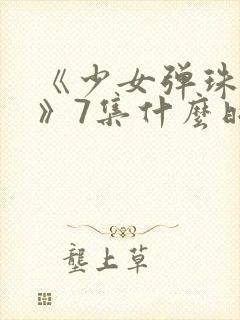 《少女弹珠
》7集什麼时
垄上草